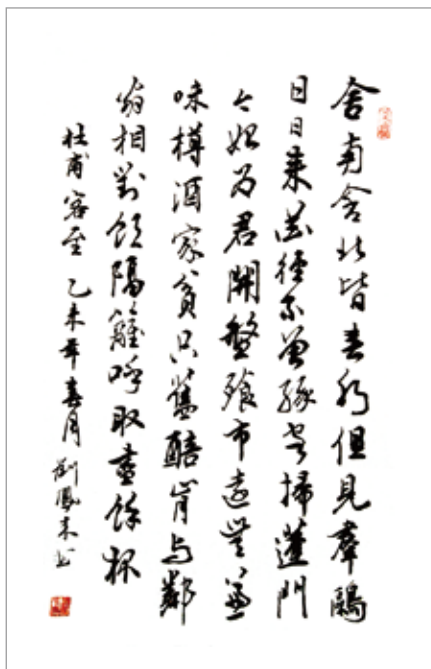 舍南舍北皆春水但見羣鷗
日日来花徑不曾緣客掃蓬門
今始为君開盤飱市遠無兼
味樽酒家貧只舊醅肯与鄰
翁相對飲隔籬呼取盡餘杯
杜甫客至 乙未年春月 劉鳳来书